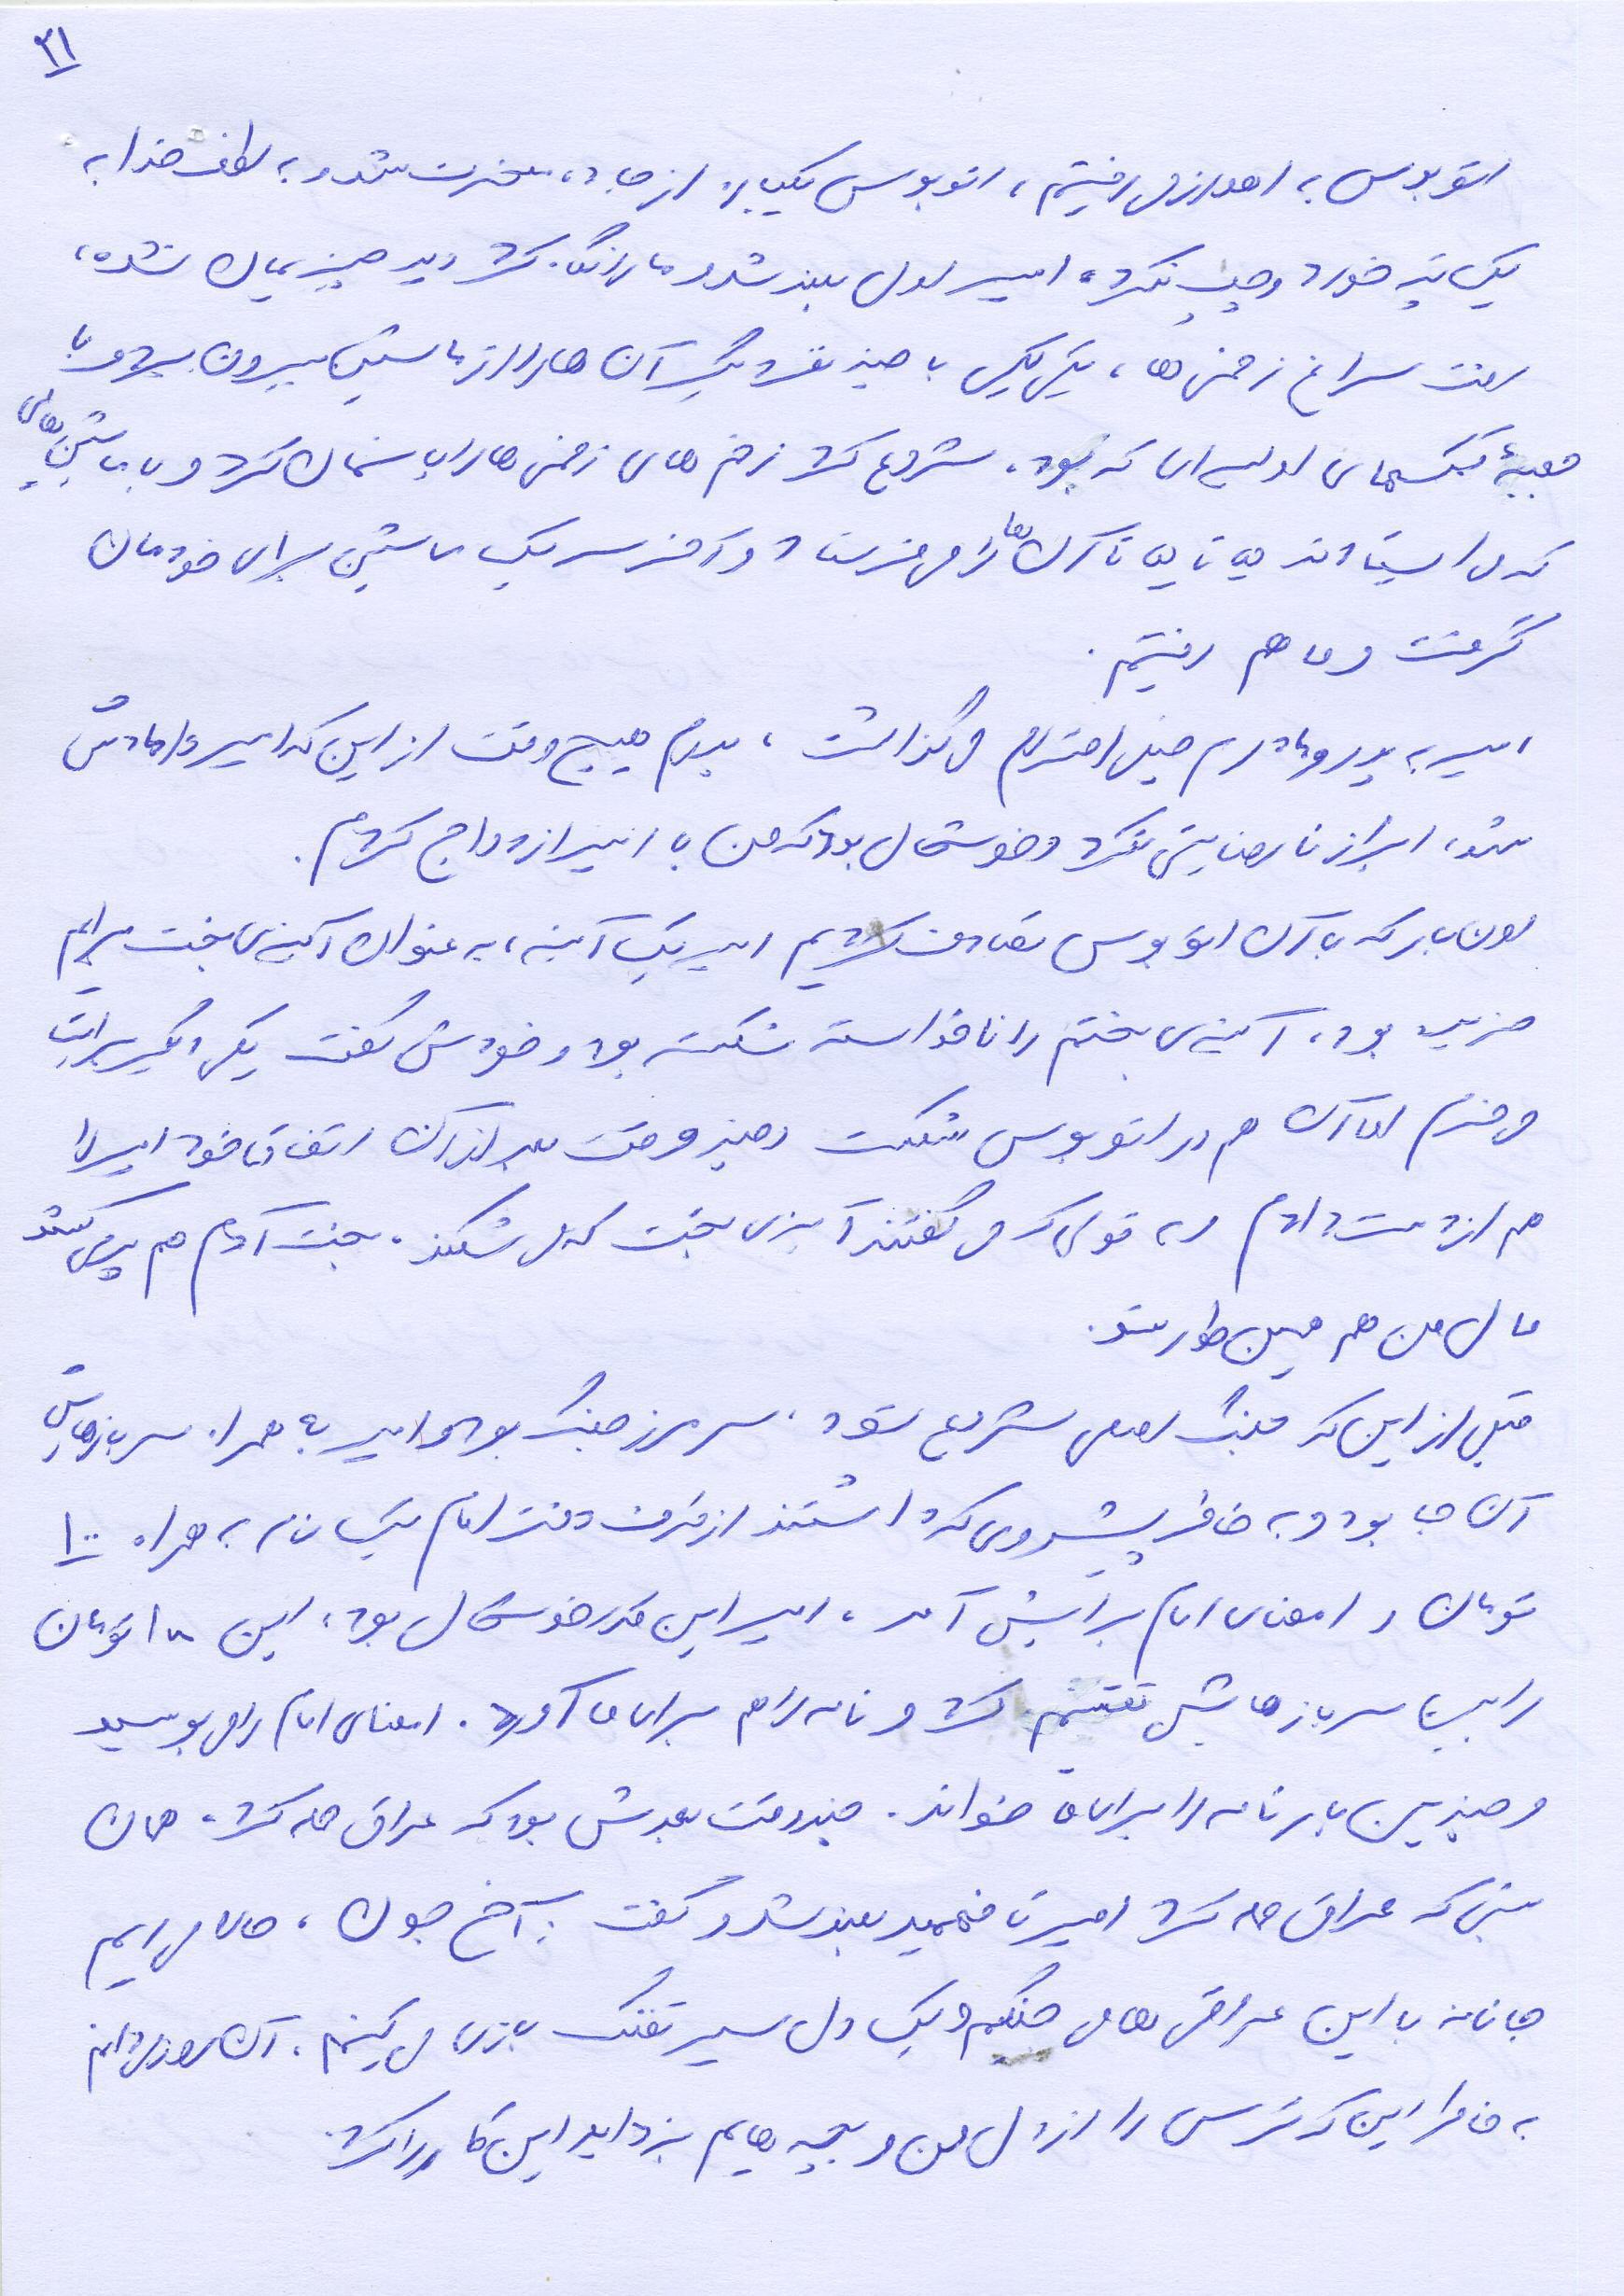 ۳۱
اتوبوس به اهواز می رفتیم، اتوبوس یکباره از جاده منحرف شد و به لطف خدا به
یک تپه خورد و چپ نکرد، امیر اول بلند شد و ما را نگاه کرد دید چیزیمان نشده،
رفت سراغ زخمی ها، یکی یکی با چند نفر دیگر آن ها را از ماشین بیرون برد و با
جعبهٔ کمکهای اولیه ای که بود، شروع کرد زخم های زخمی ها را پانسمان کرد و با ماشین هایی
که می ایستادند یه تا یه تا آن ها را می فرستاد و آخر سر یک ماشین برای خودمان
گرفت و ما هم رفتیم.
امیر به پدر و مادرم خیلی احترام می گذاشت، پدرم هیچ وقت از این که امیر دامادش
شد، ابراز نارضایتی نکرد و خوشحال بود که من با امیر ازدواج کردم.
اون بار که با آن اتوبوس تصادف کردیم امیر یک آینه، به عنوان آینه ی بخت برایم
خریده بود، آینه ی بختم را ناخواسته شکسته بود و خودش گفت یکی دیگر برایت
می خرم اما آن هم در اتوبوس شکست و چند وقت بعد از آن اتفاق خود امیر را
هم از دست دادم و به قولی که می گفتند آینه ی بخت که می شکند، بخت آدم هم برمی گردد
مال من هم همین طور شد.
قبل از این که جنگ اصلی شروع شود، سر مرز جنگ بود و امیر به همراه سربازهایش
آن جا بود و به خاطر پیشروی که داشتند از طرف دفتر امام یک نامه به همراه ۱۰۰
تومان و امضای امام برایش آمد، امیر این قدر خوشحال بود، این ۱۰۰ تومان
را بین سربازهایش تقسیم کرد و نامه را هم برای ما آورد. امضای امام را می بوسید
و چندین بار نامه را برای ما خواند. چند وقت بعدش بود که عراق حمله کرد. همان
شبی که عراق حمله کرد امیر تا فهمید بلند شد و گفت: آخ جون، حالا می رایم
جانانه با این عراقی ها می جنگیم و یک دل سیر تفنگ بازی می کنیم. آن روز می دانم
به خاطر این که ترس را از دل من و بچه هایم بزداید این کار را کرد.